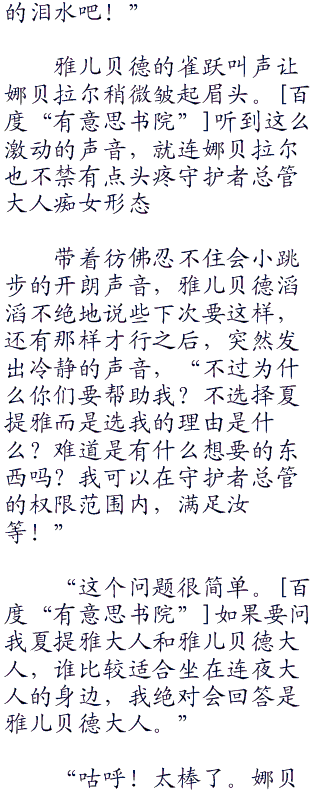 的泪水吧！”
雅儿贝德的雀跃叫声让
娜贝拉尔稍微皱起眉头。[百
度“有意思书院”]听到这么
激动的声音，就连娜贝拉尔
也不禁有点头疼守护者总管
大人痴女形态
带着彷佛忍不住会小跳
步的开朗声音，雅儿贝德滔
滔不绝地说些下次要这样，
还有那样才行之后，突然发
出冷静的声音，“不过为什
么你们要帮助我？不选择夏
提雅而是选我的理由是什
么？难道是有什么想要的东
西吗？我可以在守护者总管
的权限范围内，满足汝
等！”
“这个问题很简单。[百
度“有意思书院”]如果要问
我夏提雅大人和雅儿贝德大
人，谁比较适合坐在连夜大
人的身边，我绝对会回答是
雅儿贝德大人。”
“咕呼！太棒了。娜贝